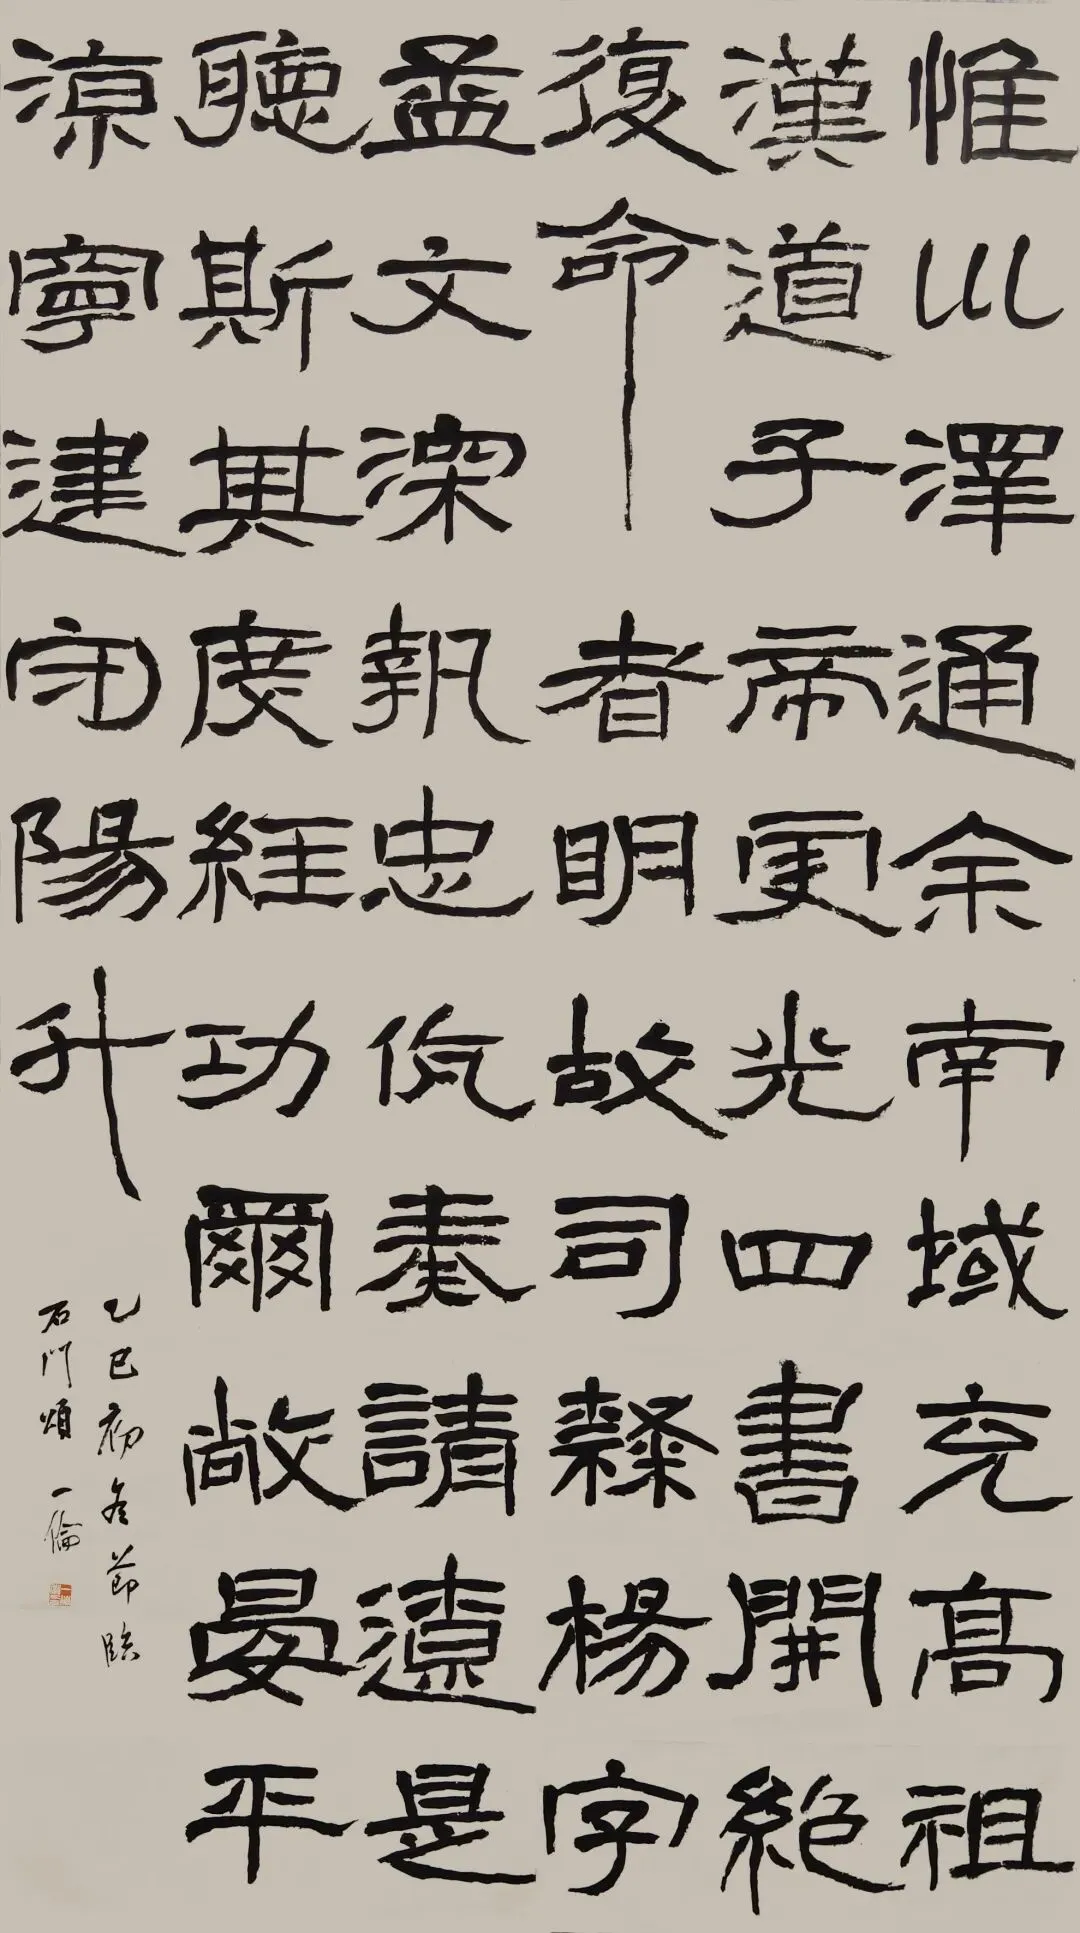 惟巛澤通余南域充高祖
漢道子帝更光四書開絶
復命者明故司隸楊字
孟文深執忠伉奏請遣是
聽斯其度經功爾敞晏平
涼寧建守陽升
乙巳初冬節臨
石門頌 一倫